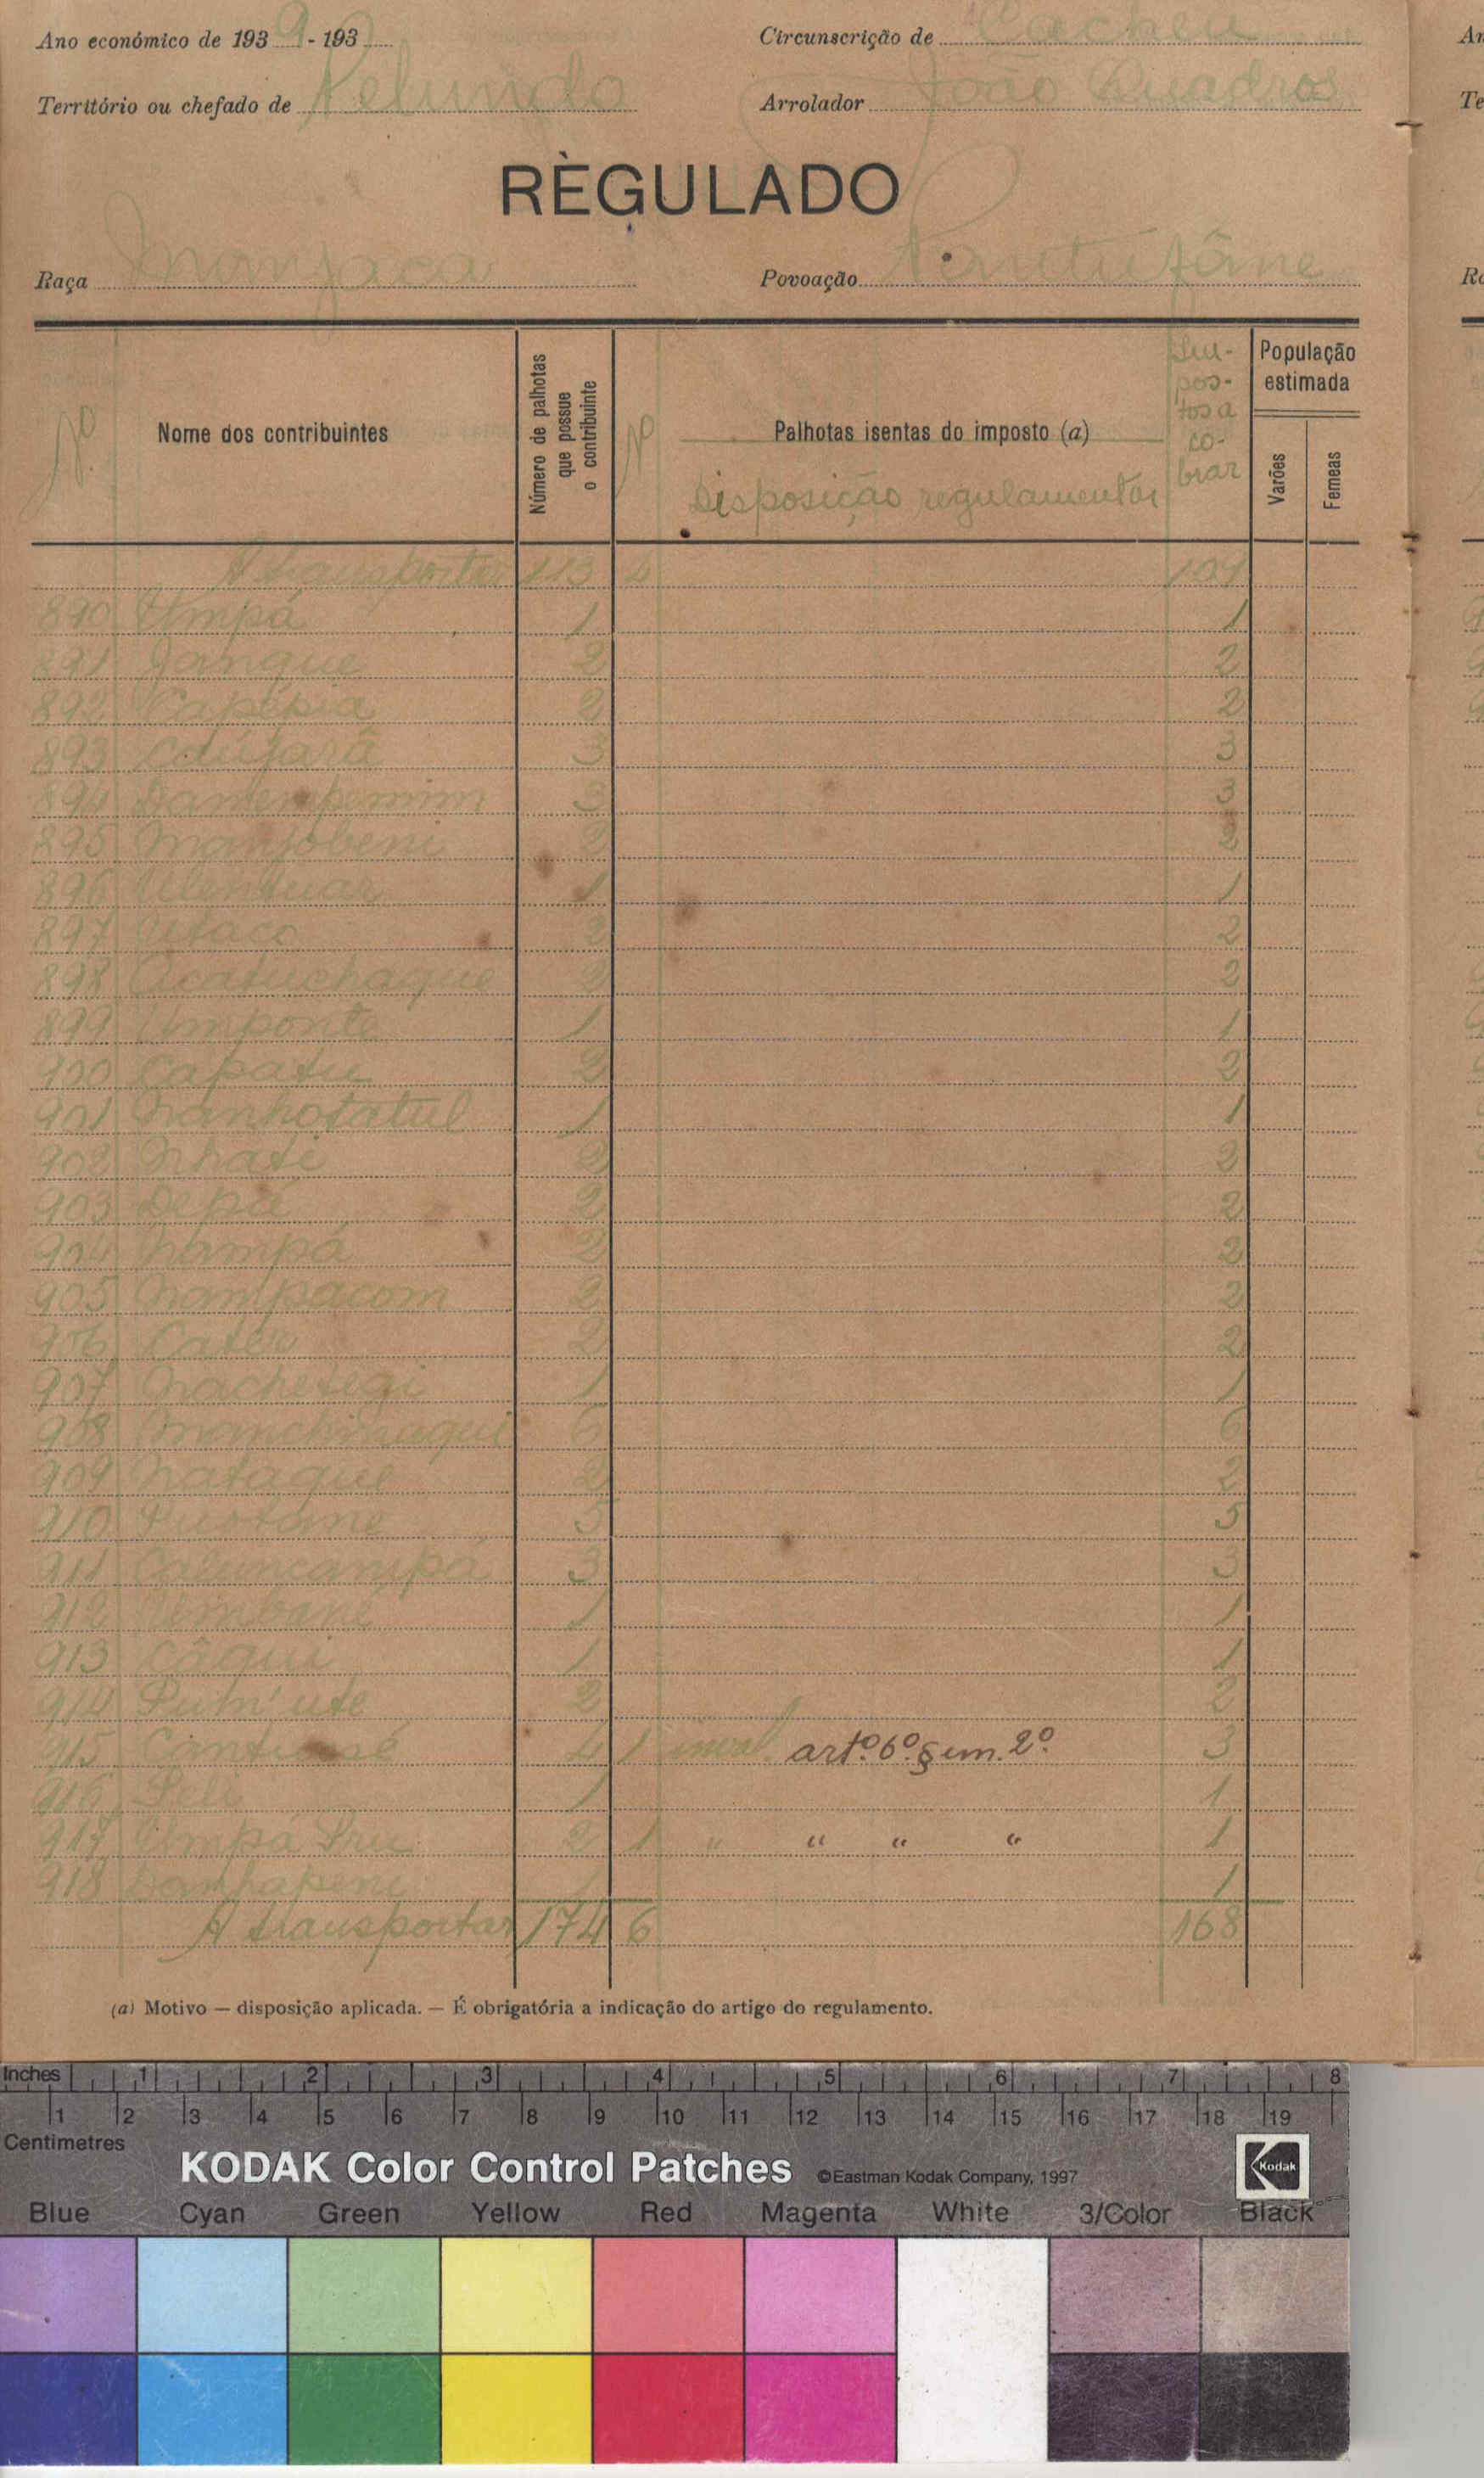 Ano económico de 1939-193
Circunscrição de Cacheu
Território ou chefado de Pelundo
Arrolador João Quadros
RÈGULADO
Raça Manjaca
Povoação
Nº
Nome dos contribuintes
Número de palhotas que possue o contribuinte
Nº
Palhotas isentas do imposto (a)
Disposição regulamentar
Im-
pos-
tos a
co-
brar
População estimada
Varões
Femeas
A transportar 113 4 109
890 Umpá 1 1
891 Jangue 2 2
892 Capépia 2 2
893 3 3
894 3 3
895 Manjobeni 2 2
896 1 1
897 2 2
898 Acatuchaque 2 2
899 Umponte 1 1
900 Capatu 2 2
901 Nanhotatul 1 1
902 Nhate 2 2
903 Depá 2 2
904 Nampá 2 2
905 Nampacom 2 2
906 Cater 2 2
907 1 1
908 6 6
909 Nataque 2 2
910 5 5
911 Caluncampá 3 3
912 1 1
913 Câqui 1 1
914 2 2
915 4 1 inval. artº 6º § um. 2º 3
916 1 1
917 Umpá 2 1 " " " " 1
918 1 1
A transportar 174 6 168
(a) Motivo — disposição aplicada. — É obrigatória a indicação do artigo do regulamento.
Inches 1 2 3 4 5 6 7 8
1 2 3 4 5 6 7 8 9 10 11 12 13 14 15 16 17 18 19
Centimetres
KODAK Color Control Patches ©Eastman Kodak Company, 1997
Kodak
Blue Cyan Green Yellow Red Magenta White 3/Color Black